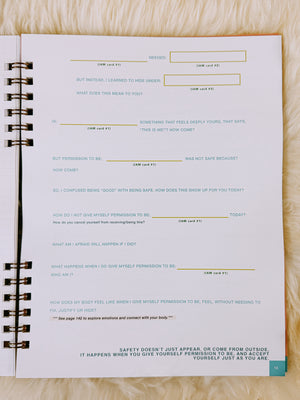 NEEDED:
(IAM card #1) (IAM card #2)
BUT INSTEAD, I LEARNED TO HIDE UNDER:
(IAM card #3)
WHAT DOES THIS MEAN TO YOU?
IS: SOMETHING THAT FEELS DEEPLY YOURS, THAT SAYS,
(IAM card #1) "THIS IS ME"? HOW COME?
BUT PERMISSION TO BE: WAS NOT SAFE BECAUSE?
(IAM card #1)
HOW COME?
SO, I CONFUSED BEING "GOOD" WITH BEING SAFE. HOW DOES THIS SHOW UP FOR YOU TODAY?
HOW DO I NOT GIVE MYSELF PERMISSION TO BE: TODAY?
How do you cancel yourself from receiving/being this? (IAM card #1)
WHAT AM I AFRAID WILL HAPPEN IF I DID?
WHAT HAPPENS WHEN I DO GIVE MYSELF PERMISSION TO BE:
(IAM card #1)
WHO AM I?
HOW DOES MY BODY FEEL LIKE WHEN I GIVE MYSELF PERMISSION TO BE, FEEL, WITHOUT NEEDING TO
FIX, JUSTIFY OR HIDE?
*** See page 142 to explore emotions and connect with your body.***
SAFETY DOESN'T JUST APPEAR, OR COME FROM OUTSIDE,
IT HAPPENS WHEN YOU GIVE YOURSELF PERMISSION TO BE, AND ACCEPT
YOURSELF JUST AS YOU ARE.